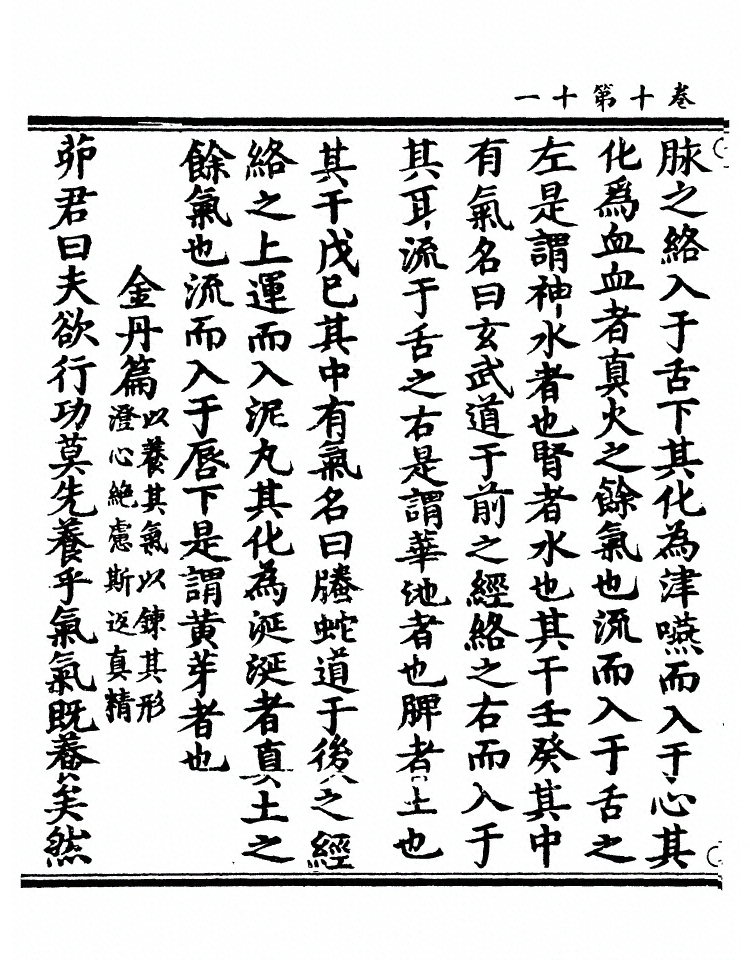 卷十第十一
脉之絡入于舌下其化為津嚥而入于心其
化爲血血者真火之餘氣也流而入于舌之
左是謂神水者也腎者水也其干壬癸其中
有氣名曰玄武道于前之經絡之右而入于
其耳流于舌之右是謂華池者也脾者土也
其干戊巳其中有氣名曰螣蛇道于後之經
絡之上運而入泥丸其化為涎涎者真土之
餘氣也流而入于唇下是謂黄芽者也
金丹篇
以養其氣以鍊其形
澄心絶慮斯返真精
茆君曰夫欲行功莫先養乎氣氣既養矣然